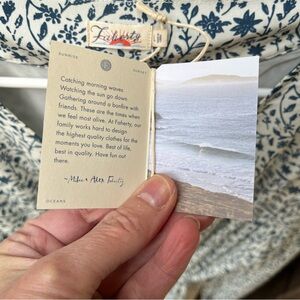 Faherty
SUNRISE
SUNSET
Catching morning waves.
Watching the sun go down.
Gathering around a bonfire with
friends. These are the times when
we feel most alive. At Faherty, our
family works hard to design
the highest quality clothes for the
moments you love. Best of life,
best in quality. Have fun out
there.
~Mike & Alex Faherty
OCEANS